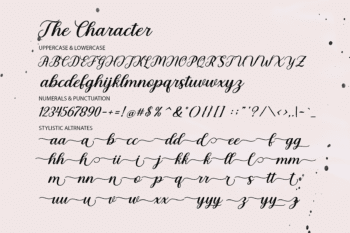 The Character
UPPERCASE & LOWERCASE
ABCDEFGHIJKLMNOPQRSTUVWXYZ
abcdefghijklmnopqrstuvwxyz
NUMERALS & PUNCTUATION
1234567890-+=!@#$%^&*()[]
STYLISTIC ALTRNATES
aa bb cc dd ee ff gg
hh ii jj kk ll mm
nn oo pp qq rr ss tt
uu vv ww xx yy zz